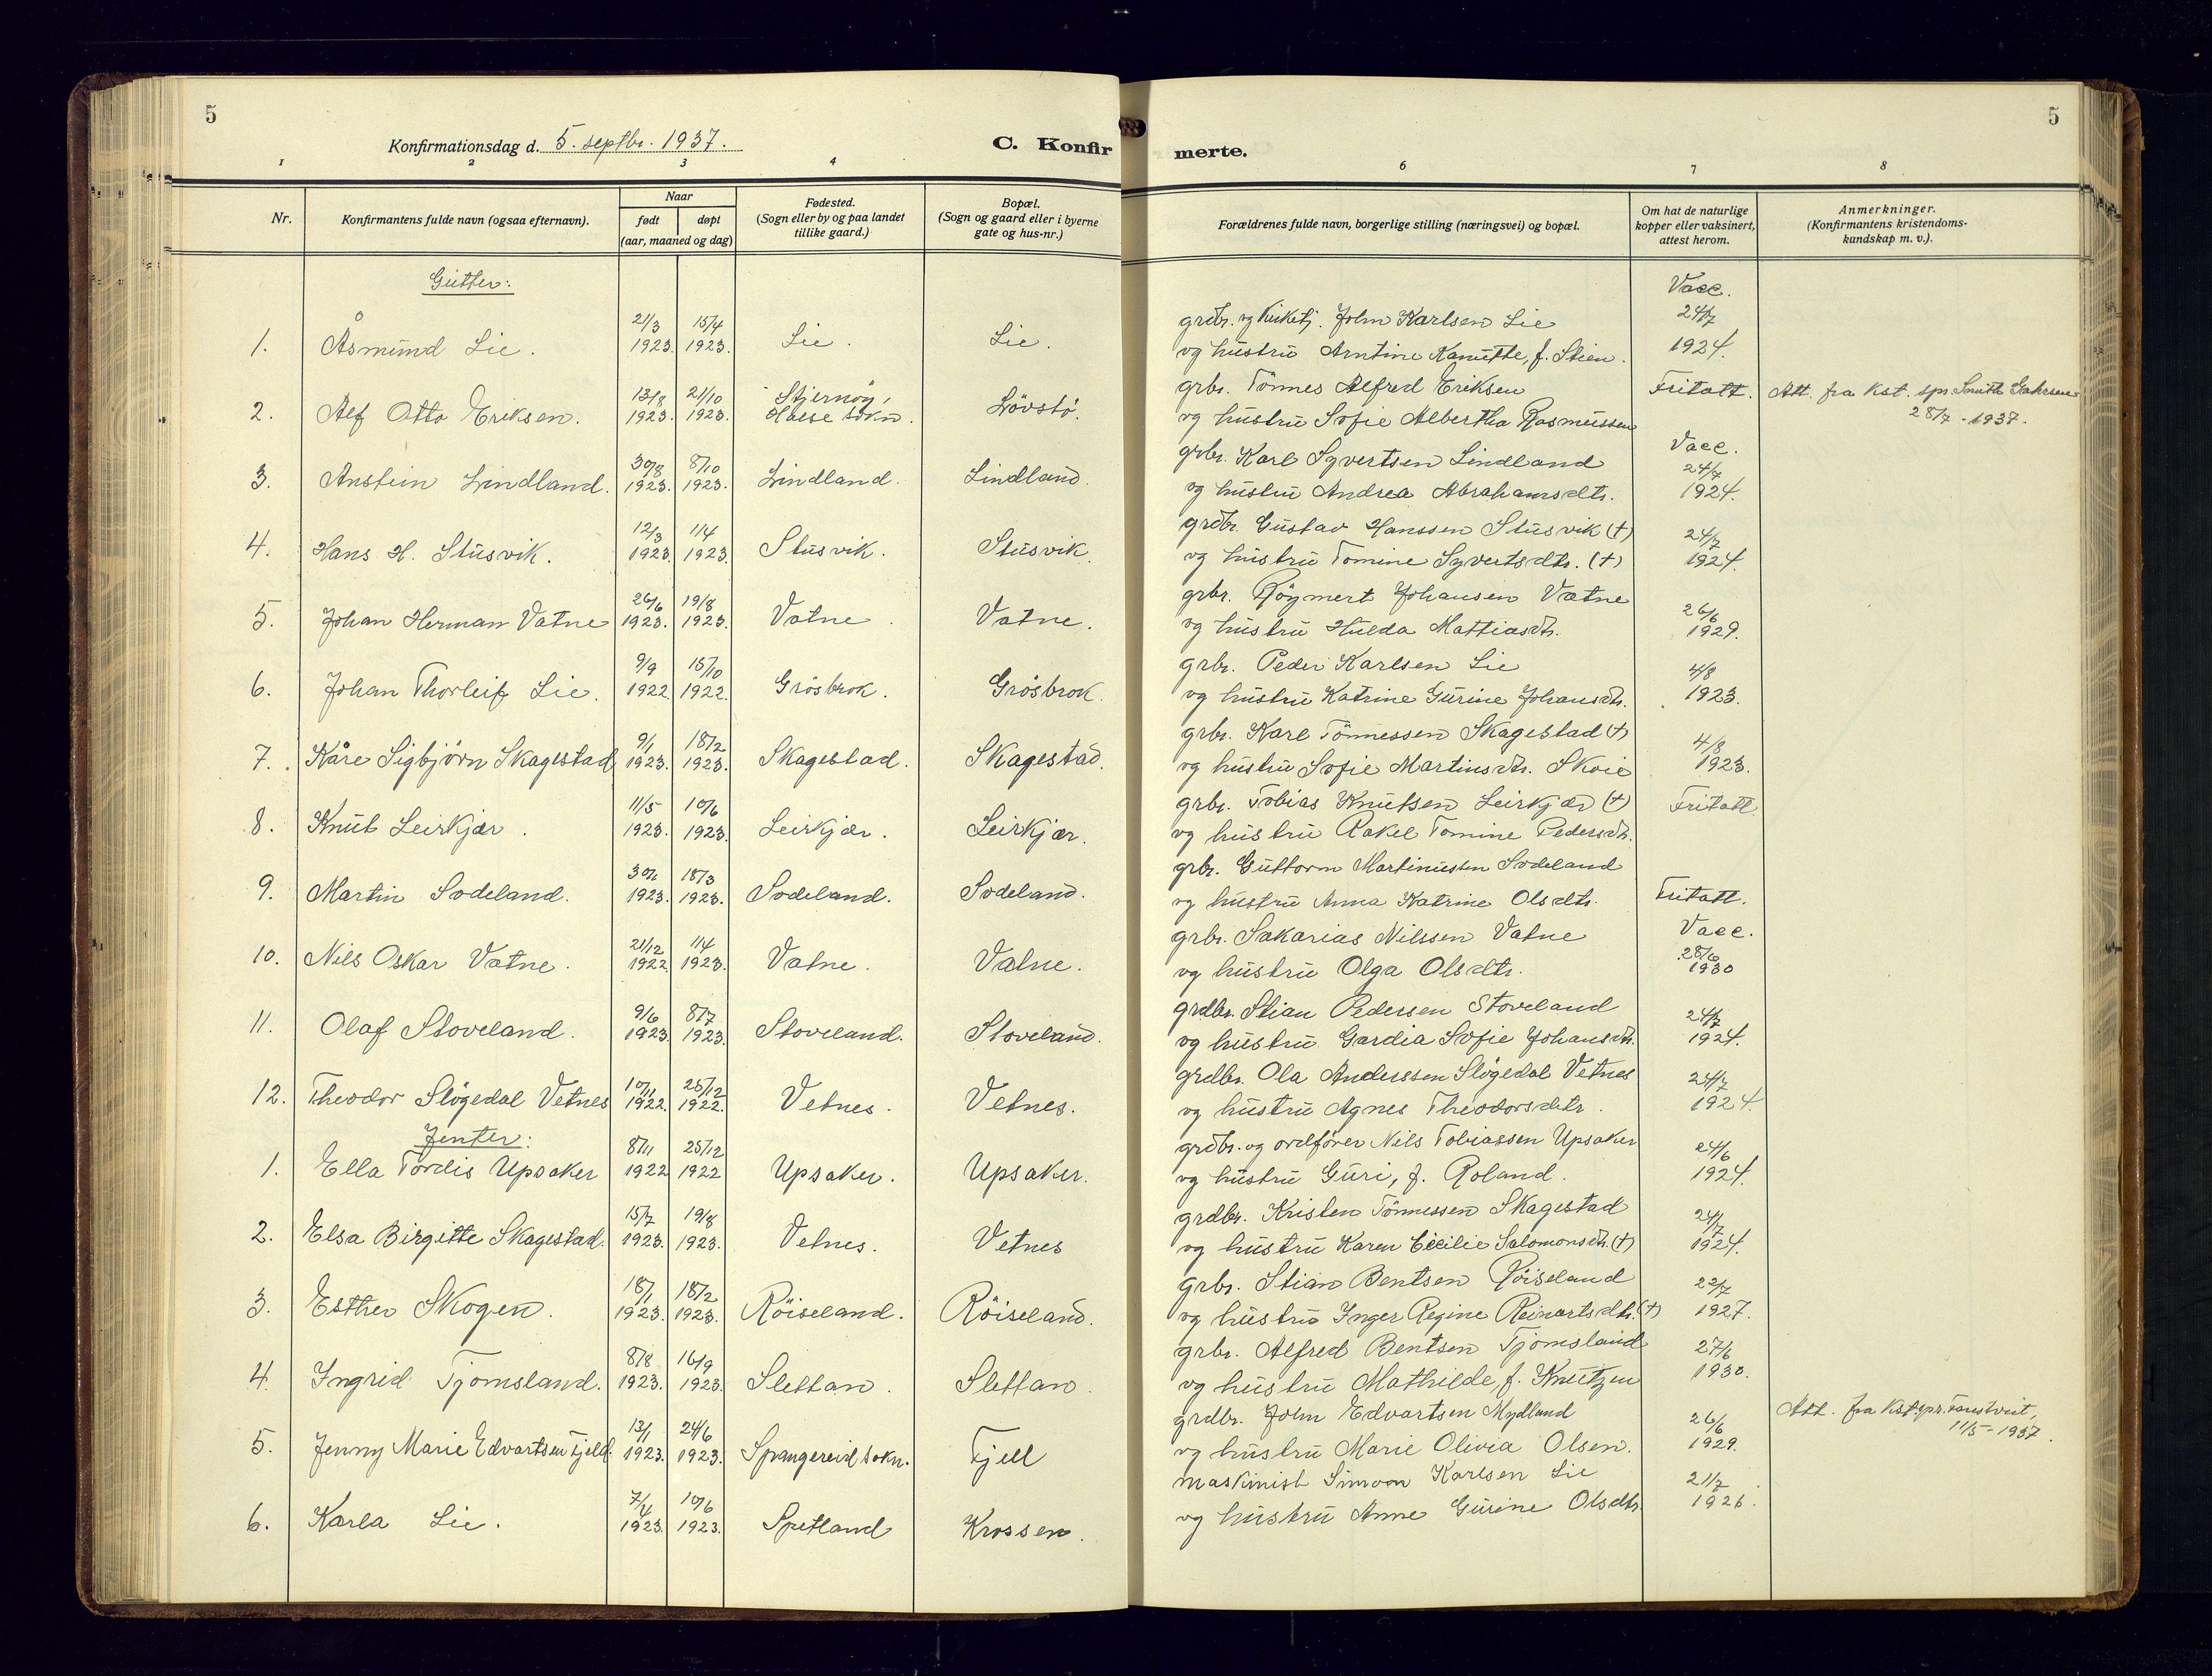 5
Konfirmationsdag d. 5. septbr. 1937.
C. Konfir
1 2 3 4
Nr.
Konfirmantens fulde navn (ogsaa efternavn).
Naar
født døpt
(aar, maaned og dag)
Fødested.
(Sogn eller by og paa landet
tillike gaard.)
Bopæl.
(Sogn og gaard eller i byerne
gate og hus-nr.)
Gutter:
21/3 15/4
1. Åsmund Lie. 1923. 1923. Lie. Lie.
13/8 21/10 Stjernøy,
2. Alf Otto Eriksen. 1923. 1923. Halse sokn Lövstö.
30/8 8/10
3. Anstein Lindland. 1923. 1923. Lindland. Lindland.
12/3 1/4
4. Hans H. Stusvik. 1923 1923. Stusvik. Stusvik.
26/6 19/8
5. Johan Herman Vatne 1923. 1923. Vatne. Vatne.
9/9 15/10
6. Johan Thorleif Lie. 1922. 1922. Grösbrok. Grösbrok.
9/1 18/2
7. Kåre Sigbjörn Skagestad 1923. 1923. Skagestad. Skagestad.
11/5 10/6
8. Knut Leirkjær. 1923. 1923. Leirkjær. Leirkjær.
30/1 18/3
9. Martin Sodeland. 1923. 1923. Sodeland. Sodeland.
21/12 1/4
10. Nils Oskar Vatne. 1922. 1923. Vatne. Vatne.
9/6 8/7
11. Olaf Stoveland. 1923. 1923. Stoveland. Stoveland.
10/11 25/12
12. Theodor Slögedal Vetnes 1922. 1922. Vetnes. Vetnes.
Jenter:
8/11 25/12
1. Ella Tordis Upsaker 1922 1922 Upsaker. Upsaker.
15/7 19/8
2. Elsa Birgitte Skagestad. 1923. 1923. Vetnes. Vetnes
18/1 18/2
3. Esther Skogen. 1923. 1923. Röiseland. Röiseland.
8/8 16/9
4. Ingrid Tjomsland. 1923. 1923. Slettan. Slettan.
13/1 24/6
5. Jenny Marie Edvartsen Fjeld 1923. 1923. Spangereid sokn. Fjell
7/4 10/6
6. Karla Lie. 1923. 1923. Spetland Krossen.
5
merte.
6 7 8
Forældrenes fulde navn, borgerlige stilling (næringsvei) og bopæl.
Om hat de naturlige
kopper eller vaksinert,
attest herom.
Anmerkninger.
(Konfirmantens kristendoms-
kundskap m. v.).
Vacc.
grdbr. og kirketj. John Karlsen Lie 24/7
og hustru Arntine Kanutte, f. Stien. 1924.
grbr. Tönnes Alfred Eriksen Fritatt. Att. fra kst. spr. Smith
og hustru Sofie Albertha Rasmussen 28/7 - 1937.
grbr. Karl Syvertsen Lindland Vacc. 24/7
og hustru Andrea Abrahamsdtr. 1924.
grdbr. Gustav Hanssen Stusvik (†) 24/7
og hustru Tomine Syvertsdtr. (†) 1924.
grbr. Röymert Johansen Vatne 26/6
og hustru Hulda Mattiasdtr. 1929.
grbr. Peder Karlsen Lie 4/8
og hustru Katrine Gurine Johansdtr. 1923.
grbr. Karl Tönnessen Skagestad (†) 4/8
og hustru Sofie Martinsdtr. Skoie 1923.
grbr. Tobias Knutsen Leirkjær (†) Fritatt.
og hustru Rakel Tomine Pedersdtr.
grbr. Guttorm Martinussen Sodeland
og hustru Anna Katrine Olsdtr. Fritatt.
grbr. Sakarias Nilssen Vatne Vacc.
28/6
og hustru Olga Olsdtr. 1930
grdbr. Stian Pedersen Stoveland 24/7
og hustru Gardia Sofie Johansdtr. 1924.
grdbr. Ola Anderssen Slögedal Vetnes 24/7
og hustru Agnes Theodorsdtr. 1924.
grdbr. og ordförer Nils Tobiassen Upsaker 24/6
og hustru Guri, f. Roland. 1924.
grdbr. Kristen Tönnessen Skagestad 24/7
og hustru Karen Cecilie Salomonsdtr. (†) 1924.
grbr. Stian Bentsen Röiseland 22/7
og hustru Inger Regine Reinartsdtr. (†) 1927.
grbr. Alfred Bentsen Tjomsland 27/6
og hustru Mathilde, f. Knutzen 1930.
grdbr. John Edvartsen Mydland 26/6 Att. fra kst. spr. Farestveit,
og hustru Marie Olivia Olsen. 1929. 11/5 - 1937.
maskinist Simon Karlsen Lie 21/7
og hustru Anne Gurine Olsdtr. 1926.